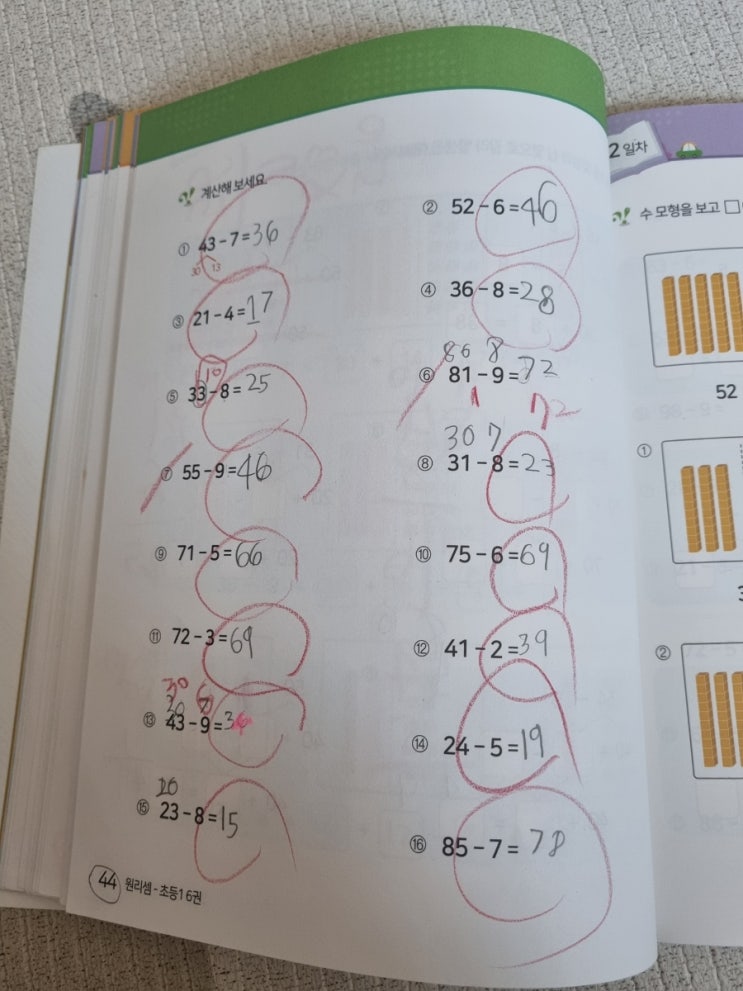 계산해 보세요.
① 43 - 7 = 36
30 13
② 52 - 6 = 46
③ 21 - 4 = 17
④ 36 - 8 = 28
10
⑤ 33 - 8 = 25
8
⑥ 81 - 9 = 72
1 72
⑦ 55 - 9 = 46
30 7
⑧ 31 - 8 = 23
⑨ 71 - 5 = 66
⑩ 75 - 6 = 69
⑪ 72 - 3 = 69
⑫ 41 - 2 = 39
30 6
⑬ 43 - 9 = 34
⑭ 24 - 5 = 19
⑮ 23 - 8 = 15
⑯ 85 - 7 = 78
44 원리셈 - 초등1 6권
2 일차
수 모형을 보고 □
52
①
②